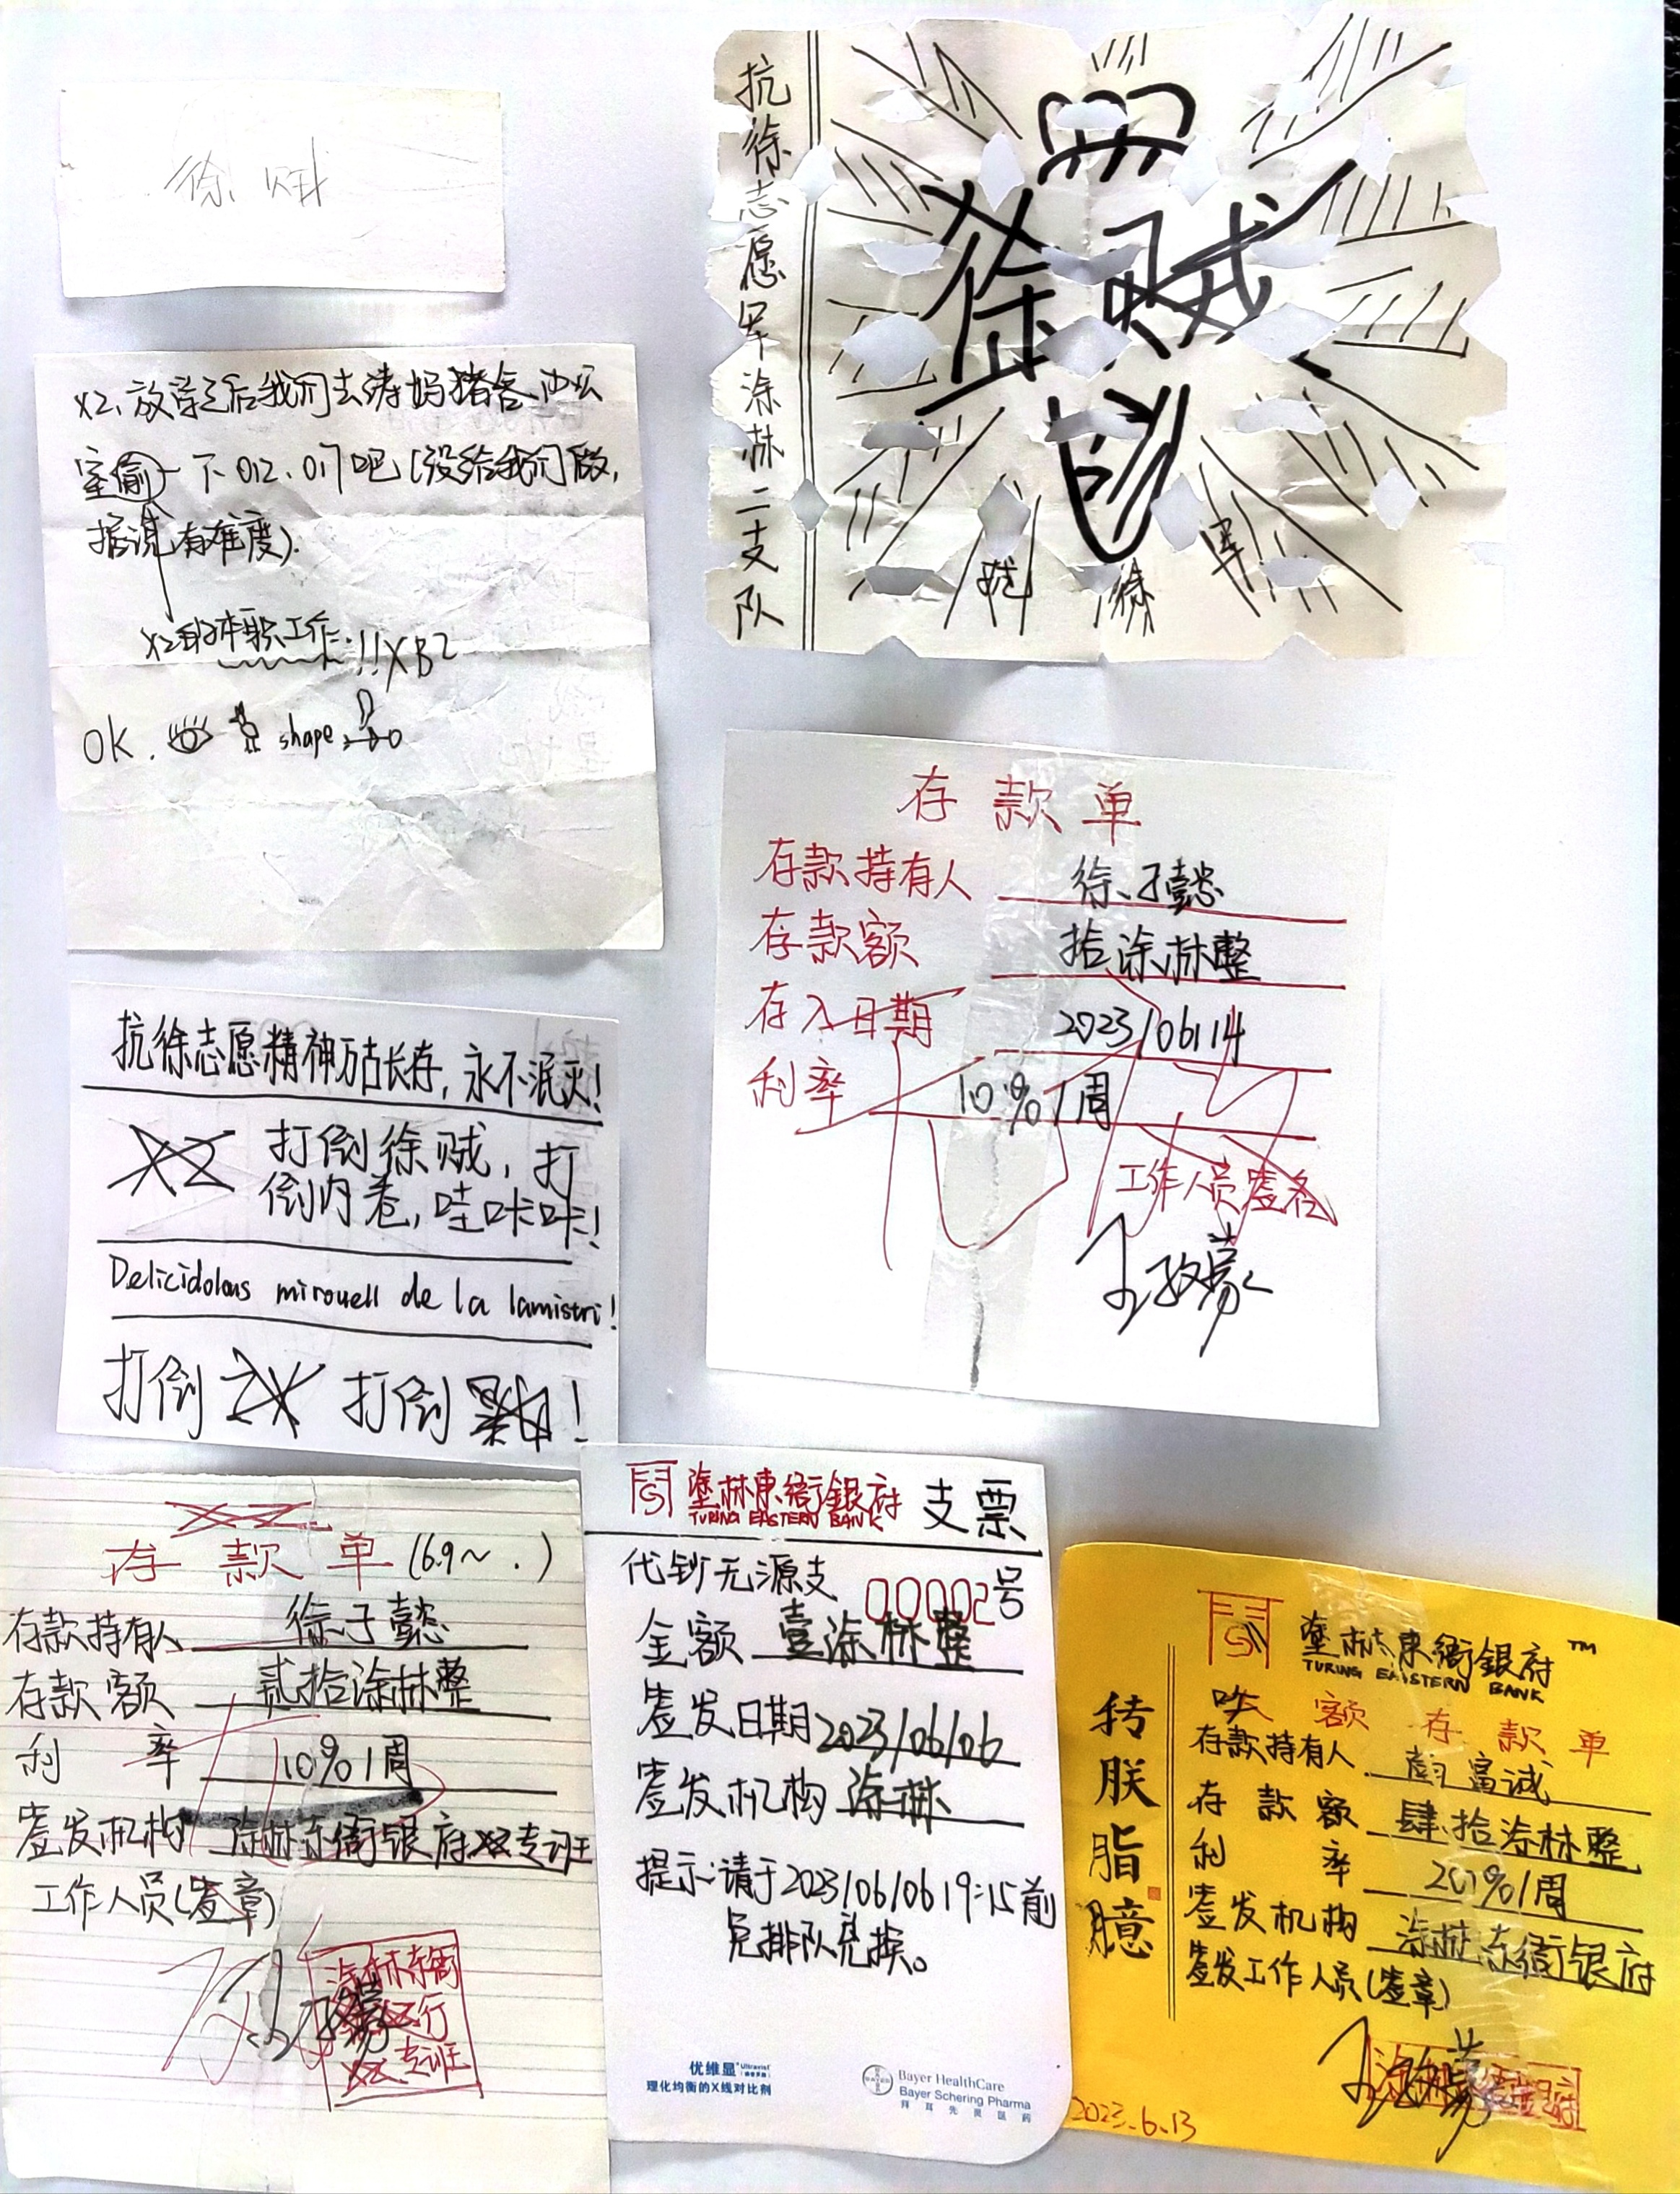 徐贼
抗徐志愿军涂林二支队
徐贼
抗
徐
军
X2、放学之后我们去涛妈猪舍办公
室偷一下012、017吧(没给我们版,
据说有难度).
X2的本职工作!!XBZ
OK.
shape
存款单
存款持有人 徐子懿
存款额 拾涂林整
存入日期 2023/06/14
利率 10%/周
工作人员签名
抗徐志愿精神万古长存,永不泯灭!
XZ 打倒徐贼,打
倒内卷,哇咔咔!
Delicidolous mirouell de la lamistri!
打倒ZX 打倒!
XZ
存款单(6.9~.)
存款持有人 徐子懿
存款额 贰拾涂林整
利率 10%/周
签发机构 涂林东衙银府XZ专班
工作人员(签章)
涂林东衙
行
XZ专班
塗林東衙銀府 支票
TURING EASTERN BANK
代钞无源支 00002号
金额 壹涂林整
签发日期 2023/06/06
签发机构 涂林
提示:请于2023/06/06 19:15前
免排队兑换。
优维显 Ultravist
理化均衡的X线对比剂
BAYER
Bayer HealthCare
Bayer Schering Pharma
拜耳先灵医药
塗林東衙銀府™
TURING EASTERN BANK
转朕脂臆
大额存款单
存款持有人 富诚
存款额 肆拾涂林整
利率 20%/周
签发机构 涂林东衙银府
签发工作人员(签章)
2023.6.13